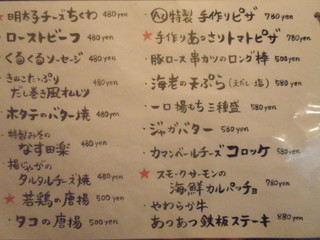 ★明太子チーズちくわ 480yen
・ローストビーフ 480yen
・くるくるソーセージ 480yen
・きのこたっぷり
だし巻き風オムレツ 480yen
・ホタテのバター焼 480yen
・特製みその
なす田楽 480yen
・揚じゃがの
タルタルチーズ焼 480yen
★若鶏の唐揚 500yen
・タコの唐揚 500yen
特製 手作りピザ 780yen
★手作りあっさりトマトピザ 780yen
・豚ロース串カツのロング棒 500yen
・海老の天ぷら (天だし・塩) 580yen
・一口揚もち三種盛 580yen
・ジャガバター 580yen
・カマンベールチーズコロッケ 580yen
★スモークサーモンの
海鮮カルパッチョ 780yen
・やわらか牛
あつあつ鉄板ステーキ 880yen